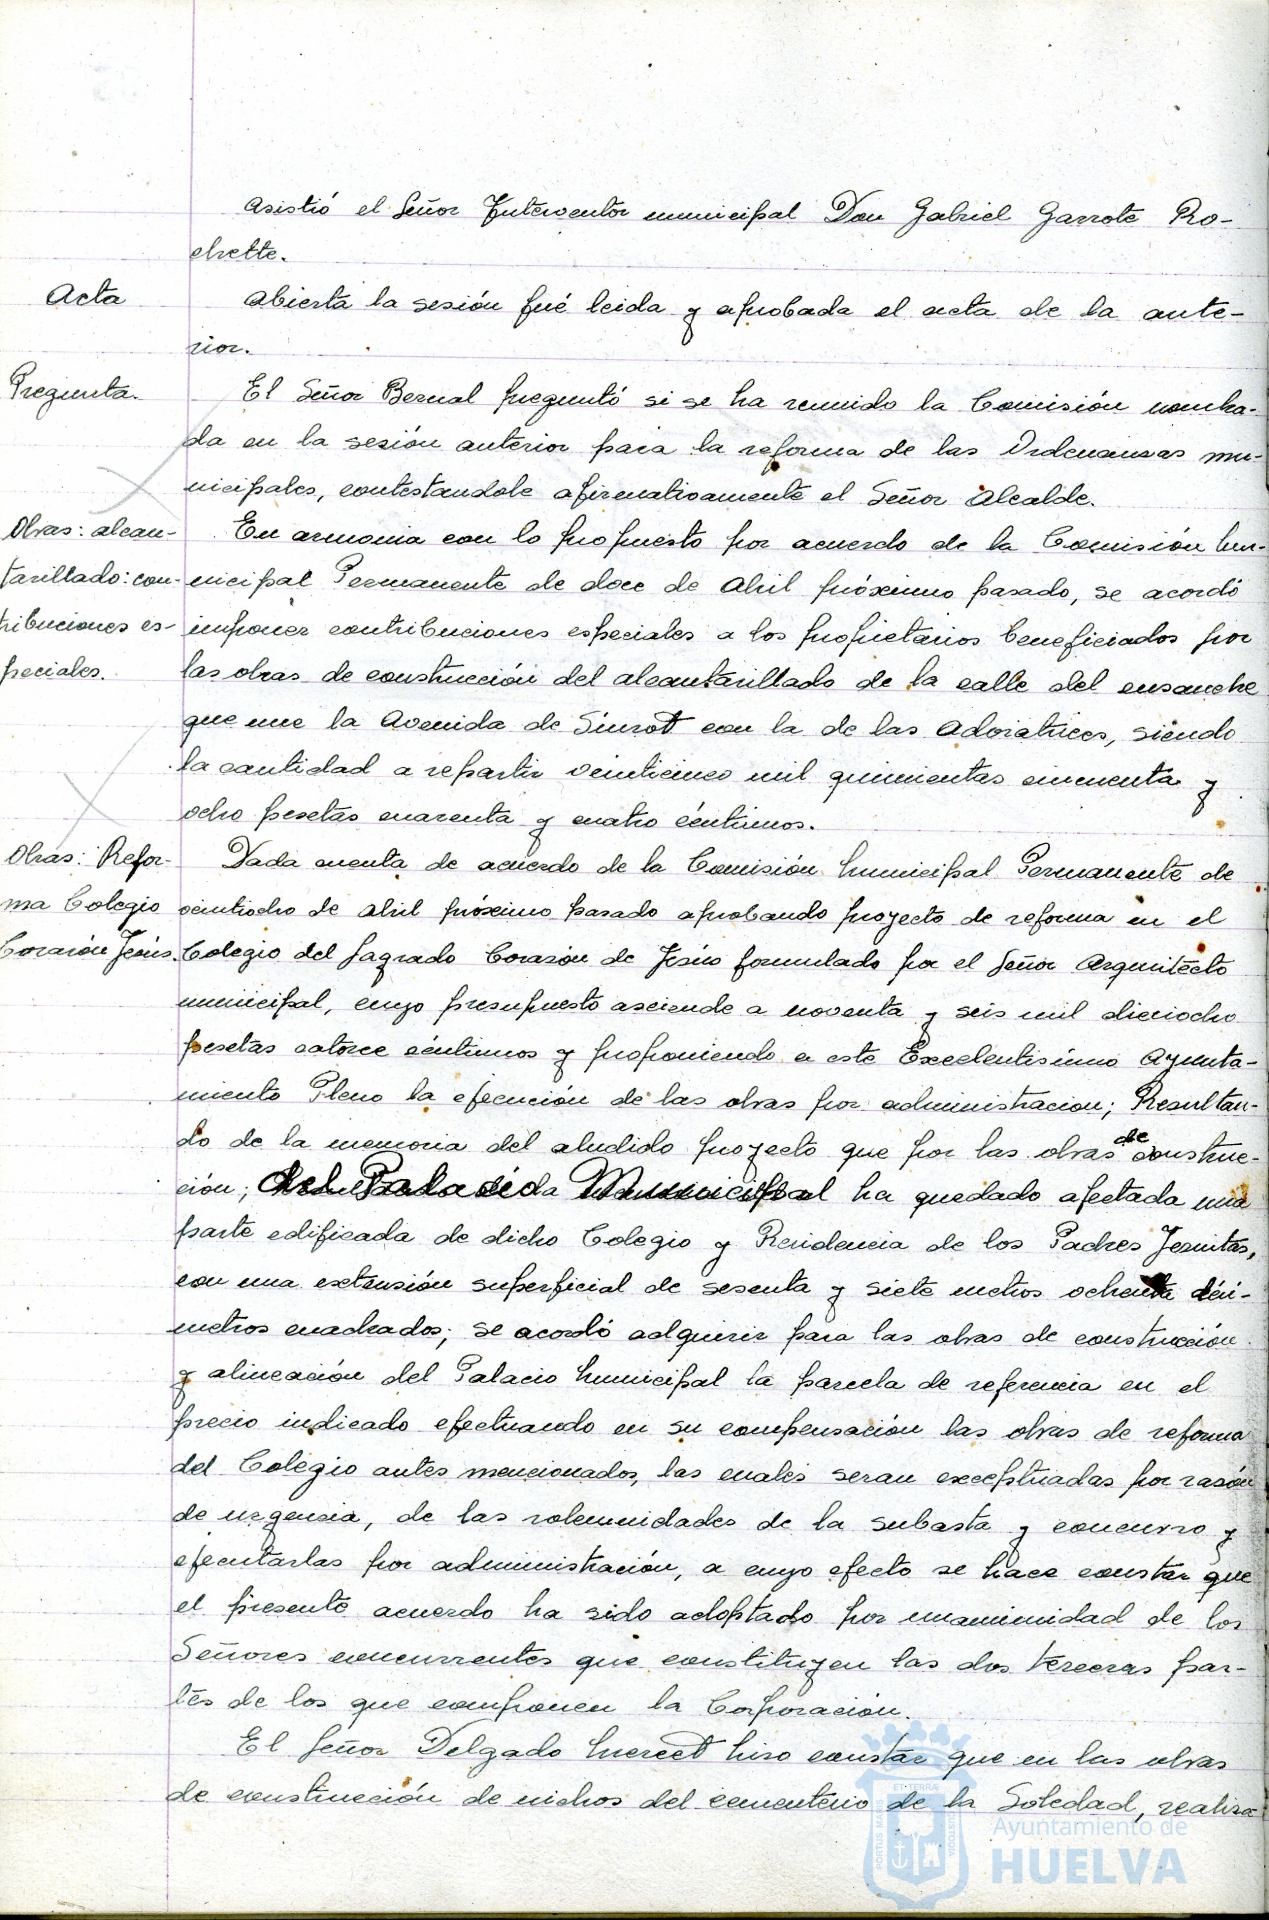 Asistió el Señor Interventor municipal Don Gabriel Garrote Ro-
chette.
Acta
Abierta la sesión fué leida y aprobada el acta de la ante-
rior.
Pregunta.
El Señor Bernal preguntó si se ha reunido la Comisión nombra-
da en la sesión anterior para la reforma de las Ordenanzas mu-
nicipales, contestandole afirmativamente el Señor Alcalde.
Obras: alcan-
tarillado: con-
tribuciones es-
peciales.
En armonia con lo propuesto por acuerdo de la Comisión Mu-
nicipal Permanente de doce de Abril próximo pasado, se acordó
imponer contribuciones especiales a los propietarios beneficiados por
las obras de construcción del alcantarillado de la calle del ensanche
que une la Avenida de Siurot con la de las Adoratrices, siendo
la cantidad a repartir veinticinco mil quinientas cincuenta y
ocho pesetas cuarenta y cuatro céntimos.
Obras: Refor-
ma Colegio
Corazón Jesús.
Dada cuenta de acuerdo de la Comisión Municipal Permanente de
veintiocho de Abril próximo pasado aprobando proyecto de reforma en el
Colegio del Sagrado Corazón de Jesús formulado por el Señor Arquitecto
municipal, cuyo presupuesto asciende a noventa y seis mil dieciocho
pesetas catorce céntimos y proponiendo a este Excelentisimo Ayunta-
miento Pleno la ejecución de las obras por administracion; Resultan-
do de la memoria del aludido proyecto que por las obras de construc-
ción; del Palacio Municipal ha quedado afectada una
parte edificada de dicho Colegio y Residencia de los Padres Jesuitas,
con una extensión superficial de sesenta y siete metros ochenta deci-
metros cuadrados; se acordó adquirir para las obras de construcción
y alineación del Palacio Municipal la parcela de referencia en el
precio indicado efectuando en su compensación las obras de reforma
del Colegio antes mencionados, las cuales seran exceptuadas por razón
de urgencia, de las solemnidades de la subasta y concurso y
ejecutarlas por administración, a cuyo efecto se hace constar que
el presente acuerdo ha sido adoptado por unanimidad de los
Señores concurrentes que constituyen las dos terceras par-
tes de los que componen la Corporación.
El Señor Delgado Mercet hizo constar que en las obras
de construcción de nichos del cementerio de la Soledad, realiza
PORTUS MARIS ET TERRÆ CUSTODIA
Ayuntamiento de
HUELVA